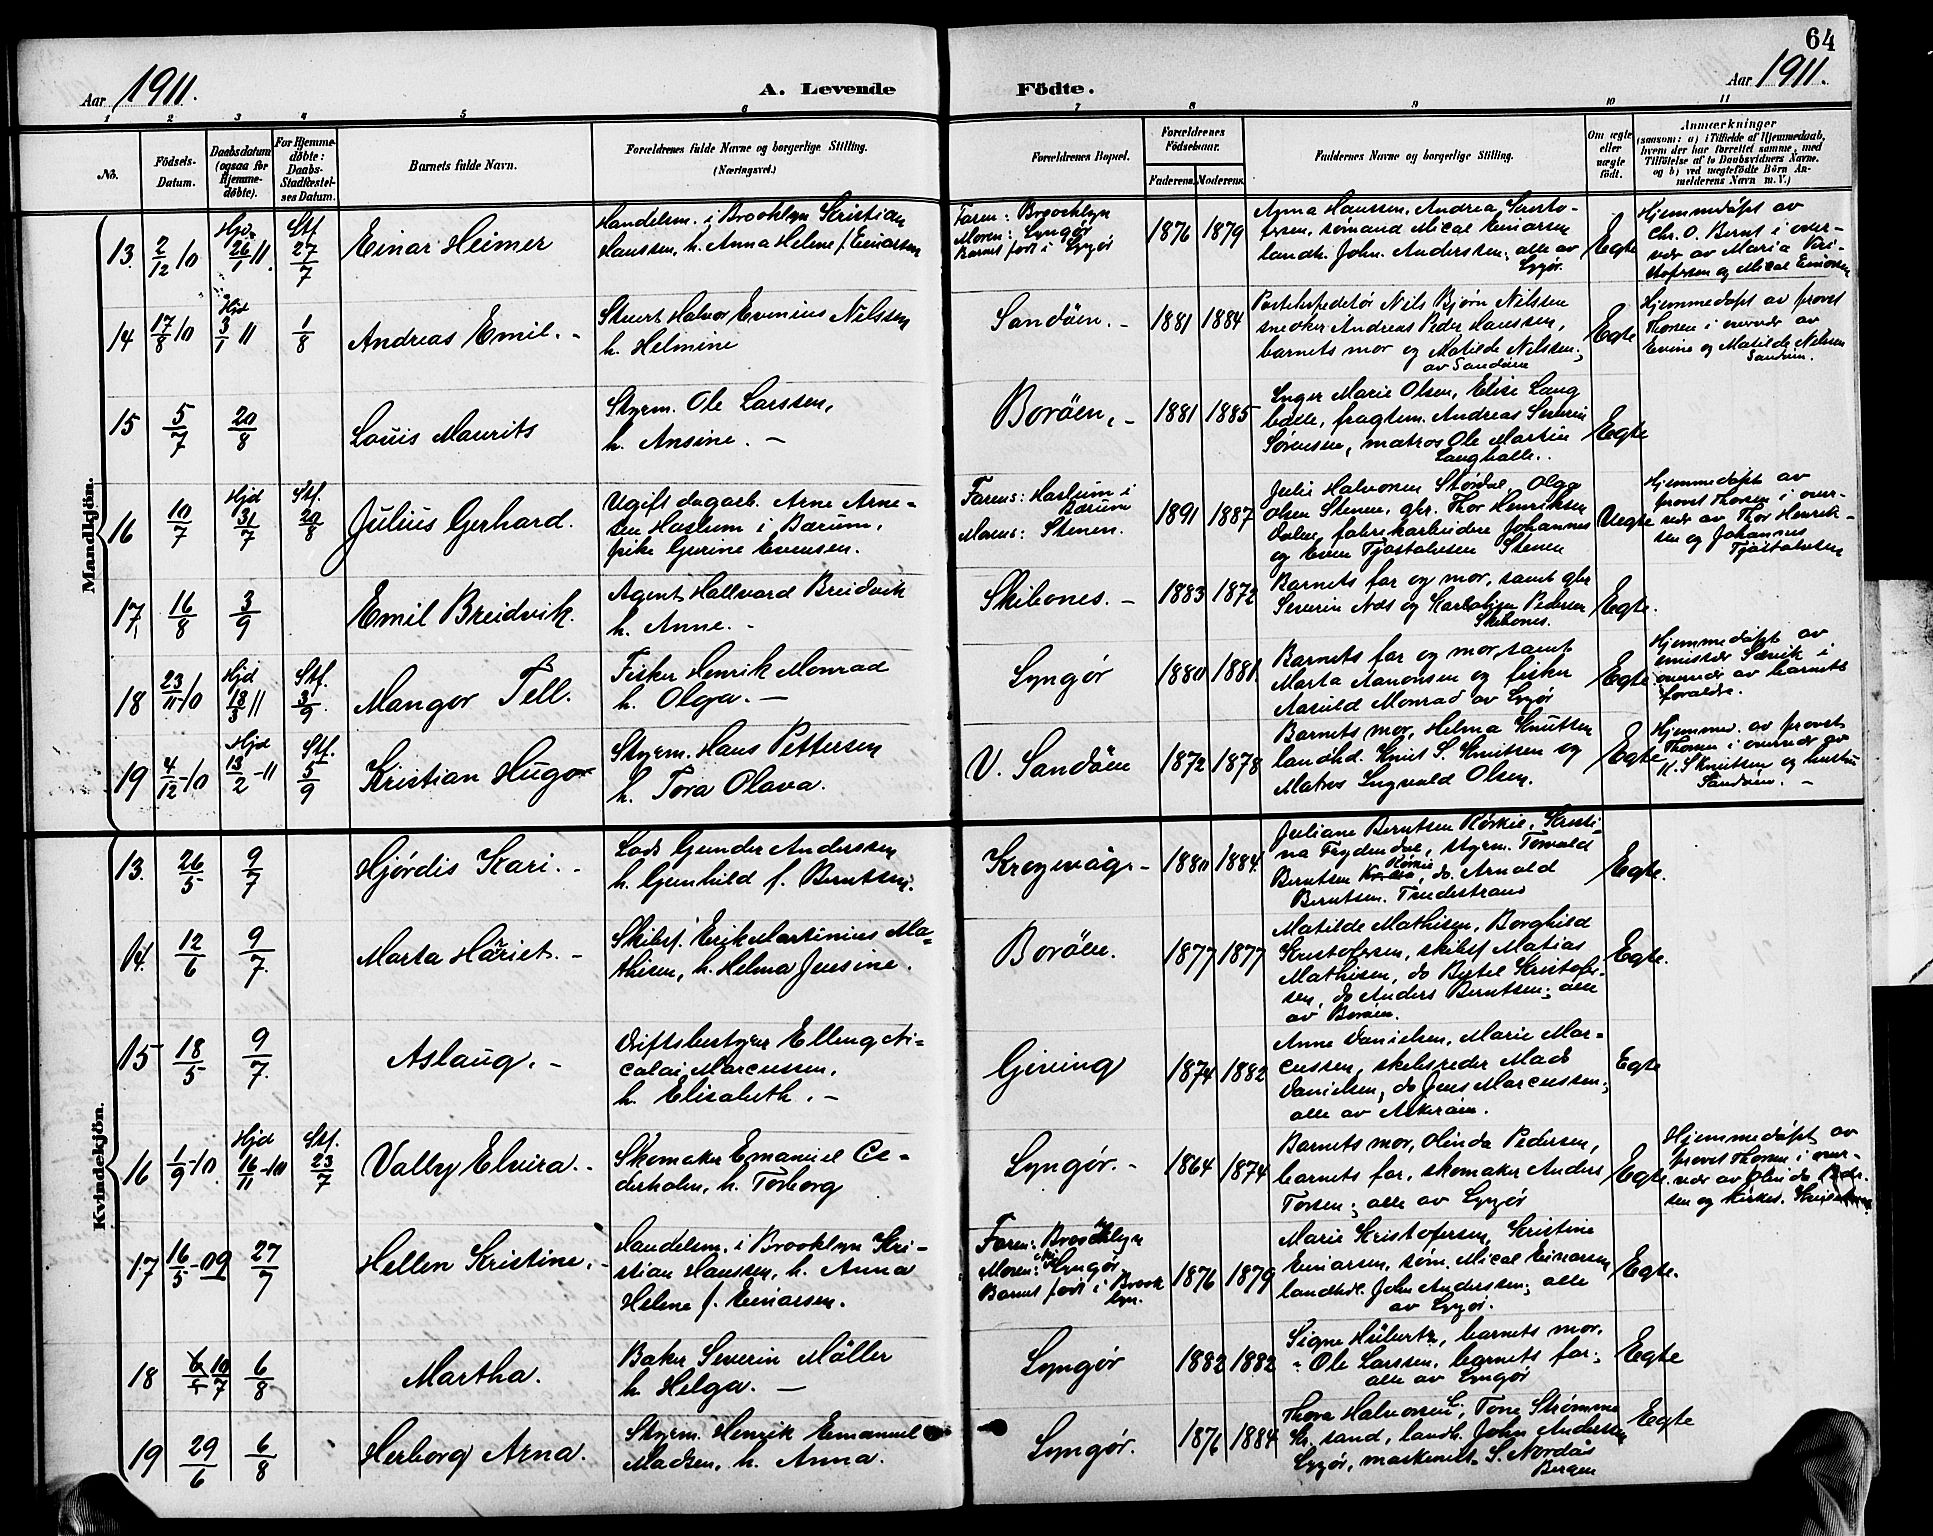 64
Aar 1911.
A. Levende
Födte.
Aar 1911.
1 2 3 4 5 6 7 8 9 10 11
No.
Födsels-
Datum.
Daabsdatum
(ogsaa for
Hjemme-
döbte).
For Hjemme-
döbte:
Daabs-
Stadfæstel-
ses Datum.
Barnets fulde Navn.
Forældrenes fulde Navne og borgerlige Stilling.
(Næringsvei.)
Forældrenes Bopæl.
Forældrenes
Födselsaar.
Faderens.
Moderens.
Faddernes Navne og borgerlige Stilling.
Om ægte
eller
uægte
födt.
Anmærkninger
(saasom: a) i Tilfælde af Hjemmedaab,
hvem der har forrettet samme, med
Tilföielse af to Daabsvidners Navne.
og b) ved uægtefödte Börn An-
melderens Navn m. V.)
Mandkjön.
13. 2/12 10 Hjd. 26/1 11. Stf. 27/7
Einar Heimer
Handelsm. i Brooklyn Kristian
Hanssen, h. Anna Helene f. Einarsen
Faren: Broocklyn
Moren: Lyngør
Barnet født i Lyngør
1876 1879
Hanssen, Andrea Kristo-
fersen, sømand Mical Einarsen
landh. John. Anderssen; alle av
Lygør.
Egte
Hjemmedøpt av
Chr. O. Bernt i over-
vær av Maria Kri-
stofersen og Mical Einarsen
14 17/8 10 Hjd 3/1 11 1/8
Andreas Emil. -
Stuert Halvor Evenius Nilssen
h. Helmine
Sandøen. -
1881 1884
Nils Bjørn Nilssen
snedker Andreas Peder Hanssen,
barnets mor og Matilde Nilssen;
av Sandøen
Egte
Hjemmedøpt av provst
Thorsen i overvær av
Evine og Matilde Nilssen
Sandøen.
15 5/7 20/8
Louis Maurits
Styrm. Ole Larssen,
h. Ansine. -
Borøen, -
1881 1885
Inger Marie Olsen, Elise Lang
balle, fragtem. Andreas Severin
Sørensen, matros Ole Martin
Langballe.
Egte
16 10/7 Hjd 31/7 Stf. 20/8
Julius Gerhard.
Ugift dagarb. Arne Arne-
sen Haslum i Bærum,
pike Gerine Evensen.
Farens: Haslum i
Bærum
Morens: Stenen.
1891 1887
Julie Halvorsen Størdal, Olga
Olsen Stenen, gbr. Thor Henriksen
Dalen, fabrikarbeidere Johannes
og Even Tjøstolvsen Stenen
Uegte
Hjemmedøpt av
provst Thorsen i over-
vær av Thor Henrik-
sen og Johannes
Tjøstolvsen
17. 16/8 3/9
Emil Breidvik.
Agent Hallvard Breidvik
h. Anne. -
Skibones. -
1883 1872
Barnets far og mor, samt gbr
Severin Næs og Karl Pedersen
Skibones.
Egte.
18 23/11 10 Hjd 18/3 11 Stf. 3/9
Mangor Tell.
Fisker Henrik Monrad
h. Olga. -
Lyngør
1880 1881
Barnets far og mor, samt
Marta Aanonsen og fisker
Aasuld Monrad av Lygør
Egte
Hjemmedøpt av
emissær Sævik i
overvær av barnets
foreldre.
19 4/12 10 Hjd 13/2 11 Stf. 3/9
Kristian Hugo
Styrm. Hans Pettersen
h. Tora Olava.
V. Sandøen
1872 1878
Barnets mor, Helma Knutsen
landhd. Knut S. Knutsen og
Matros Ingvald Olsen.
Egte
Hjemmed. av provst
Thorsen i overvær av
K. S Knutsen og hustru
Sandøen. -
Kvindekjön.
13. 26/5 9/7
Hjørdis Kari. -
Lods Gunder Anderssen
h. Gunhild f. Berntsen.
Krogevåg -
1880 1884
Juliane Berntsen Røskil, Kristi-
na Frydendal, styrm. Torvald
Berntsen, do. Arnold
Berntsen. Tvedestrand
Egte.
14. 12/6 9/7.
Marta Hariet. -
Skibsf. Erik Martinius Ma-
thisen, h. Helma Jensine.
Borøen.
1877 1877
Matilde Mathisen, Borghild
Kristofersen, skibsf Matias
Mathisen, do Bertel Kristofer-
sen, do Anders Berntsen; alle
av Borøen.
Egte.
15 18/5 9/7.
Aslaug. -
Driftsbestyrer Elling Ni-
colai Marcussen,
h. Elisabeth. -
Gieving
1874 1882
Anne Danielsen, Marie Mar-
cussen, skibsreder Mads
Danielsen, do Jens Marcussen;
alle av Askerøen.
Egte
16 1/9 10. Hjd 16/11 10 Stf. 23/7
Valby Elvira. -
Skomaker Emanuel Ce-
derholm, h. Torborg
Lyngør. -
1864 1874
Barnets mor, Olinda Pedersen,
barnets far, skomaker Anders
Torsen; alle av Lygør
Egte.
Hjemmedøpt av
provst Thorsen i over-
vær av Olinda Peder-
sen og kirkes.
17 16/5 09 27/7
Hellen Kristine. -
Handelsm. i Brooklyn Kri-
stian Hanssen, h. Anna
Helene f. Einarsen.
Faren: Broocklyn
Moren: Lyngør.
Barnet født i Brook
lyn.
1876 1879
Marie Kristofersen, Kristine
Einarsen, søm. Mical Einarsen
landhdl. John Anderssen; alle
av Lygør.
Egte.
18 10/7 6/8
Martha.
Baker Severin Møller
h. Helga. -
Lyngør
1882 1882
Signe Hubertz, barnets mor.
Ole Larssen, barnets far;
alle av Lyngør
Egte
19 29/6 6/8
Herborg Arna.
Styrm. Henrik Emanuel
Madsen, h. Anna.
Lyngør.
1876 1884
Thora Halvorsen L., Tone Strømme
Kr. sand, landh. John Andersen
Lygør, S. Nordås
Bergen
Egte